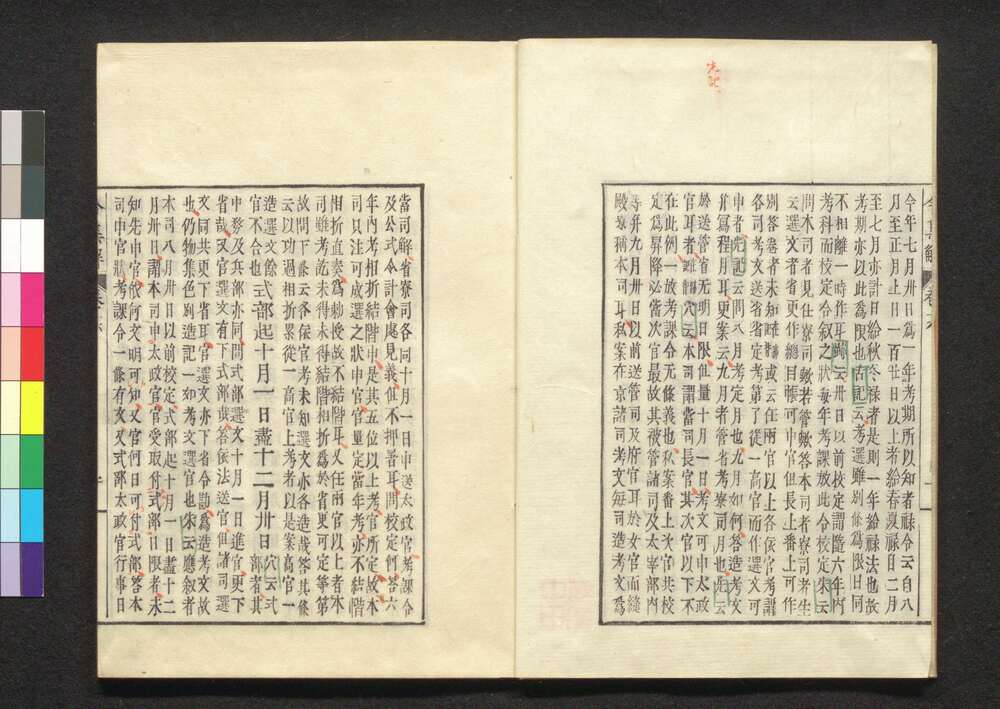 今年七月卅日為一年考期所以知者祿令云自八
月至正月上日一百廿日以上者給春夏祿自二月
至七月亦計日給秋冬祿者是則一年給祿法也故
考期亦以此為限也古記云考選雖別條為限日同
不相離一時作耳跡云卅日以前校定謂暨六年
考科而校定合叙之狀每年考課放此令校定朱云
問本司者見仕寮司歟若管歟答本司者寮司者生
云選文者省更作總目帳可申官但長上番上可作
別卷者未知或云在兩官以上各依官考謂
各司考文送省省定考第了從一高官而作選文可
申者古記云問八月考定月也九月如何答造考文
幷為程月耳更案云九月者管省考寮司月也先云
於送管省无明日限但量十月一日考文可申太政
官耳者穴云本司謂當司長官其次官以下不
在此例一放考課令无條義也私案番上次官共校
定為昇降必當次官最故其被管諸司及太宰部內
等幷九月卅日以前送管司及府官耳於女官而縫
殿寮推本司耳私案在京諸司考文每司造考文為
當司解省寮司各同十月一日申送太政官考課令
及公式令大計會處見義但不押署耳問校定何答六
年內考相折結階申是共五位以上考官所定故本
司只注可成選之狀申官官量定當年考亦不結階
相折直奏為勅授故不結階耳又任兩官以上者本
司雖考訖未得未得結階相折為於省更可定等第
故問下條云各依官考未知選文亦各造哉答其條
云以功過相折累從一高官上考者以是案高官一
造選文餘官不合也式部起十月一日盡十二月卅日穴云式部者其
中務及兵部亦同問式部選文十月一日進官更下
省哉又官選文有下式部哉答依法送官但諸司選
文同共更下省耳官選文亦下省合勘為造考文故
也仍物集色別造記一如考文選官也朱云應叙者
本司八月卅日以前校定式部起十月一日盡十二
月卅日謂本司申太政官官受取付式部日限者未
知先申官依何文明可知又官何日可付式部答本
司申官狀考課令一條有文又式部太政官行事日